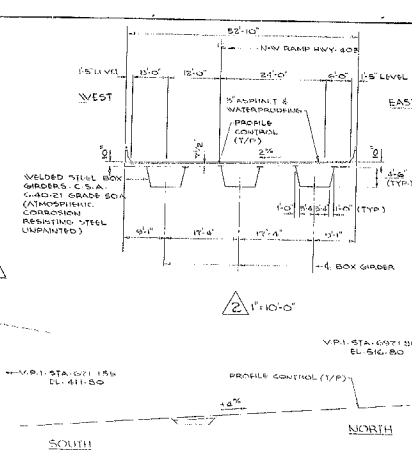 52'-10"
N-W RAMP HWY. 403
1'-5" LEVEL
8'-0"
12'-0"
24'-0"
6'-0"
1'-5" LEVEL
WEST
EAST
3" ASPHALT &
WATERPROOFING
PROFILE
CONTROL
(T/P)
2%
10"
7½"
10"
WELDED STEEL BOX
GIRDERS - C.S.A.
G.40-21 GRADE 50A
(ATMOSPHERIC
CORROSION
RESISTING STEEL
UNPAINTED)
4'-6"
(TYP.)
1'-0"
3'-4
3'-4
1'-0"
(TYP)
9'-1"
17'-4"
17'-4"
9'-1"
℄ BOX GIRDER
2 1"=10'-0"
V.P.I. STA.
EL. 516.80
V.P.I. STA.
EL. 411.80
PROFILE CONTROL (T/P)
+4%
SOUTH
NORTH